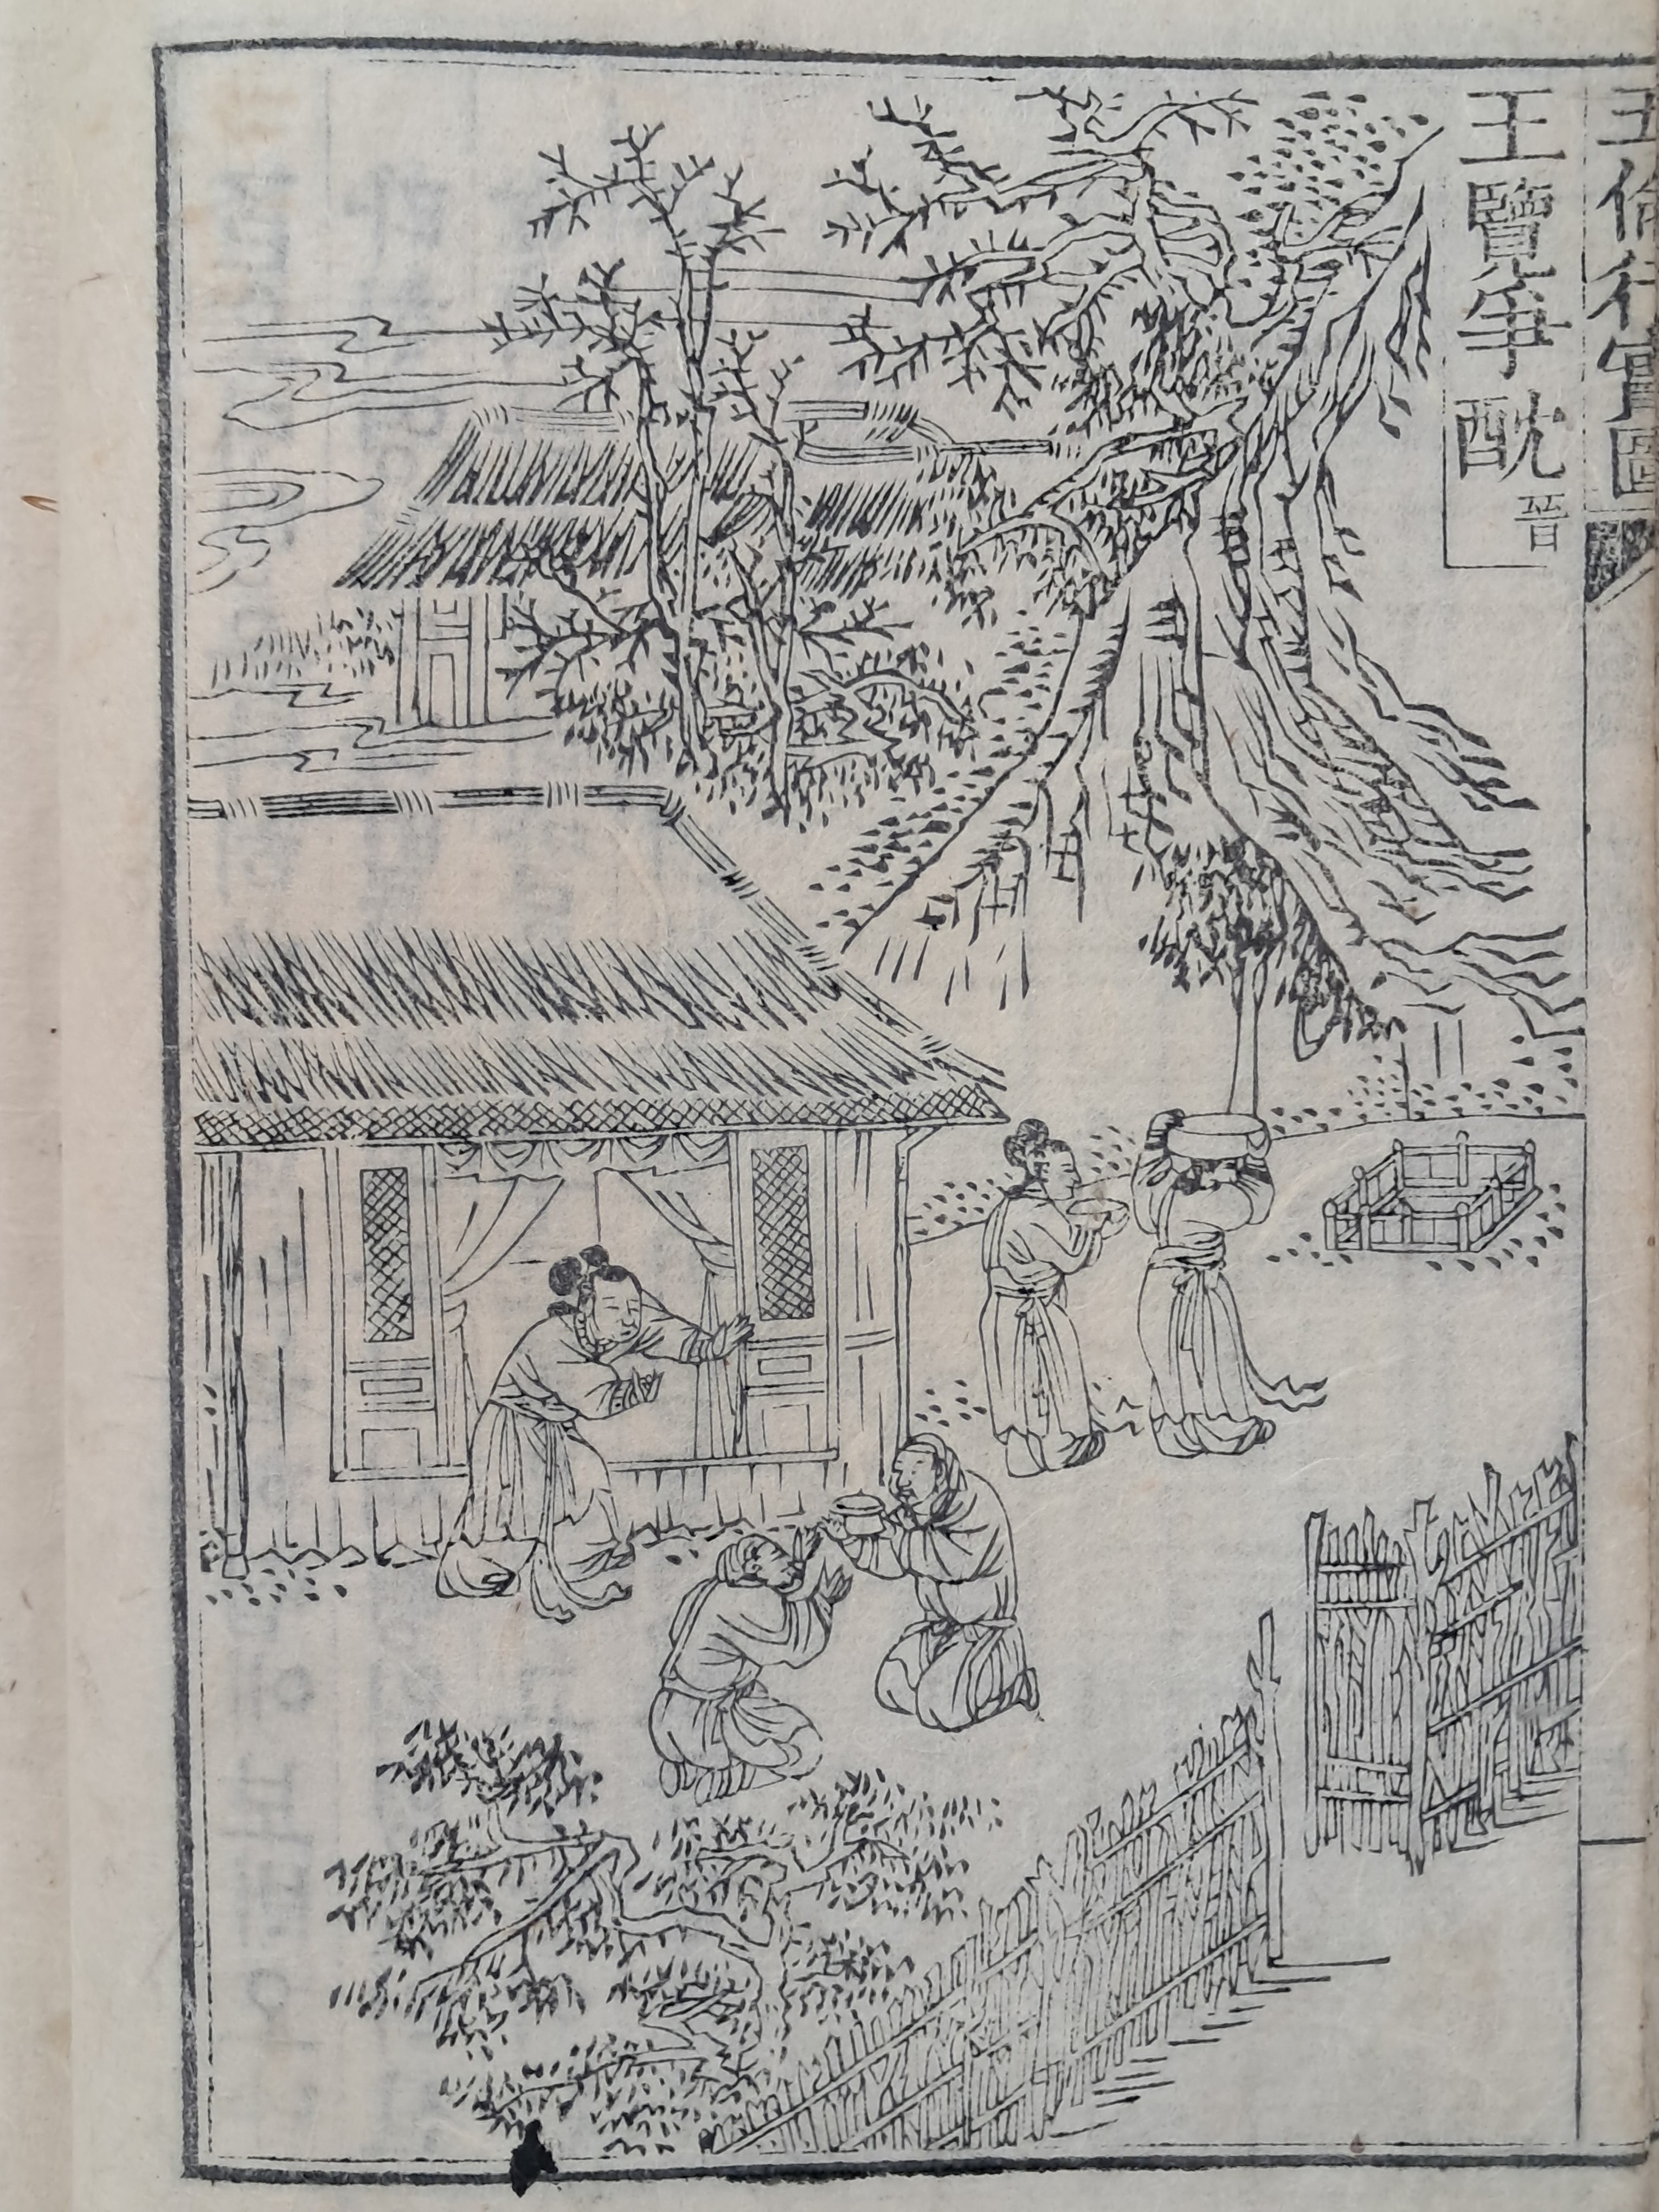 五倫行實圖
王覽爭酖 晉